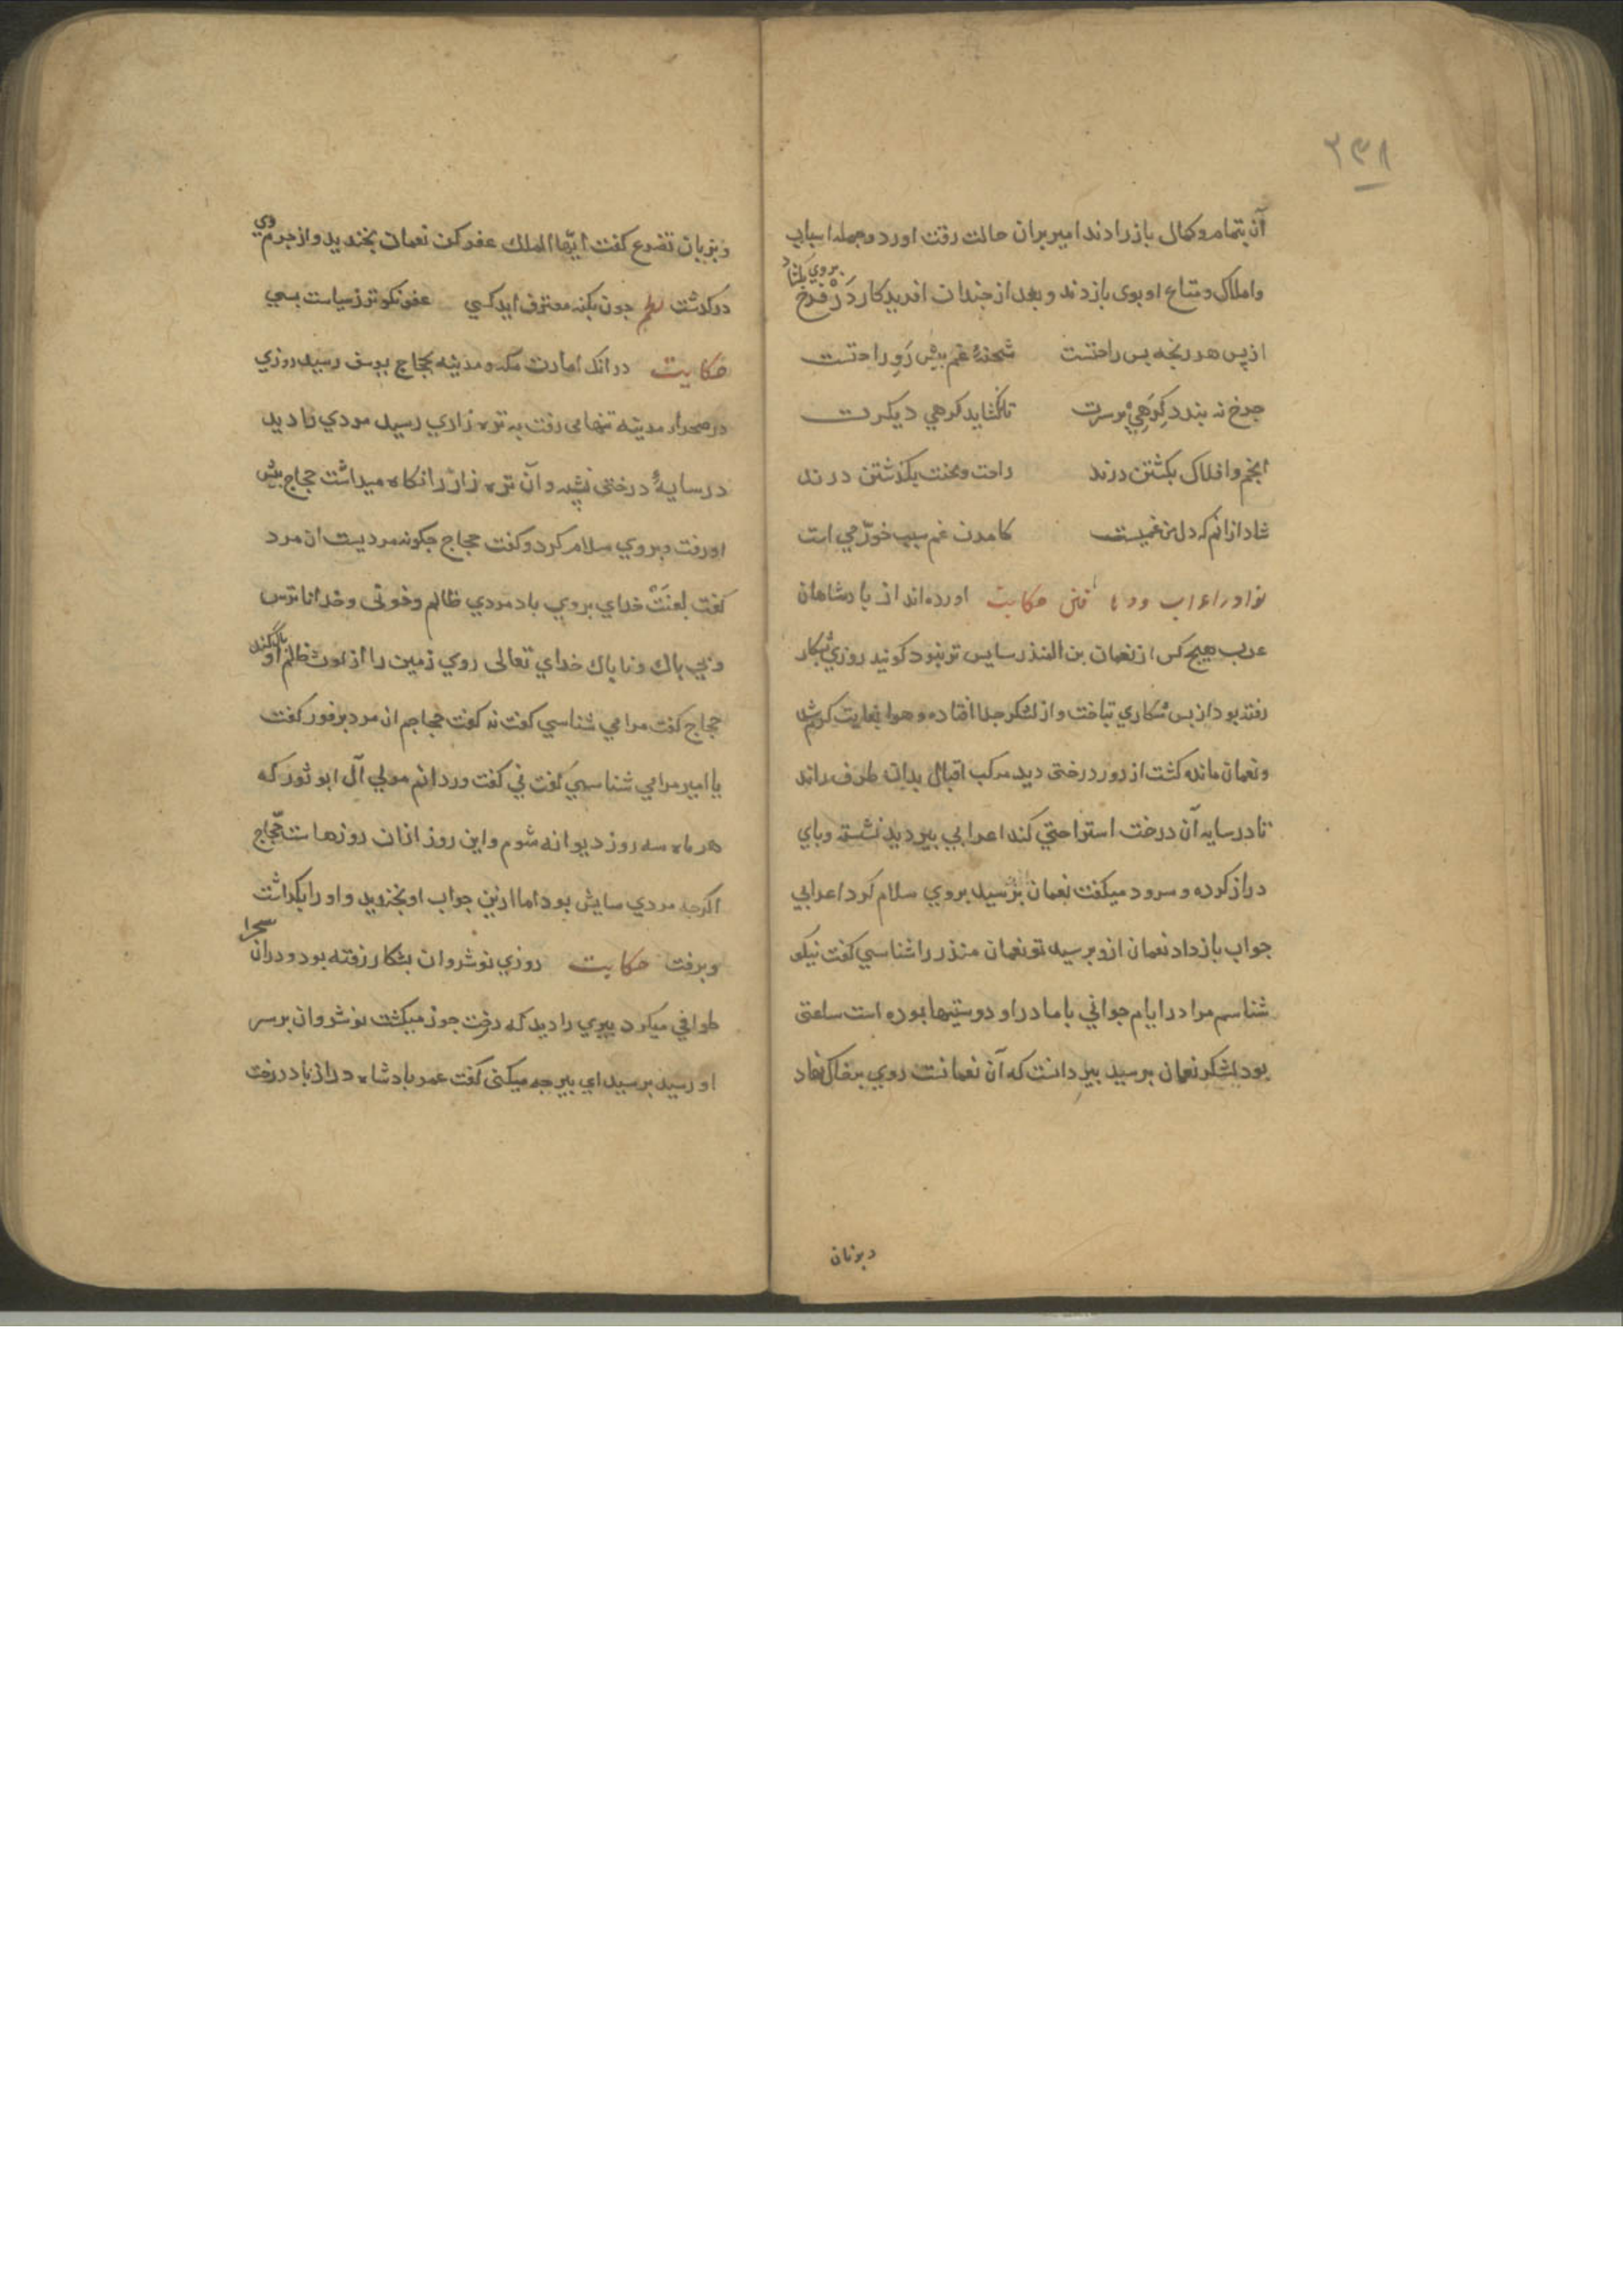 ۲۳۸
آن بتمام و کمال باز دادند امیر بران حالت رقت اورد و جمله اسباب
و املاک و متاع او بوی باز دند و بعد از جندان افریدکار دَرْ فرَخ بروی بکشاد
از پس هر رنجه بس راحتست شحنهٔ غم بیش رَوِ راحتست
جرخ نه بندد کِرَهِي بر سرت تا نکشاید کرهي دیکرت
انجم و افلاک بکشتن درند راحت و محنت بکذشتن درند
شاد ازانم که دل من غمیست کامدن غم سبب خورّمي است
نوادر اعراب حکایت اورده‌اند از بادشاهان
عرب هیچ کس از نعمان بن المنذر سایس تر نبود کویند روزي بشکار
رفته بود از بس شکاري بتاخت و از لشکر جدا افتاده و هوا بغایت کرم شد
و نعمان مانده کشت از دور درختی دید مرکب اقبال بدان طرف راند
تا در سایه آن درخت استراحتي کند اعرابي بیر دید نشسته و باي
دراز کرده و سرود میکفت نعمان برسید بروي سلام کرد اعرابي
جواب باز داد نعمان ازو برسید تو نعمان منذر را شناسي کفت نیکو
شناسم مرا در ایام جواني با مادر او دوستیها بوده است ساعتی
بود لشکر نعمان برسید بیر دانست که آن نعمانست روي بر خاک نهاد
و بزبان
و بزبان تضرع کفت ایّها الملک عفو کن نعمان بخندید و از جرم وي
درکذشت نظم جون بکنه معترف اید کسي عفو نکوتر ز سیاست بسي
حکایت در آنک امارت مکه و مدینه بحجاج یوسف رسید روزي
در صحراء مدینه تنها می رفت به تره زاري رسید مردي را دید
در سایهٔ درختی نشسته و آن تره زار را نکاه میداشت حجاج بیش
او رفت و بروي سلام کرد و کفت حجاج جکونه مردیست ان مرد
کفت لعنَتْ خداي بروي باد مردي ظالم و خونی و خدا ناترس
و بي باک و ناباک خداي تعالی روي زمین را از لوث ظلم او باک کند
حجاج کفت مرا مي شناسي کفت نه کفت حجاجم ان مرد بر فور کفت
یا امیر مرا مي شناسي کفت ني کفت وردانم مولي آل ابو ثور که
هر ماه سه روز دیوانه شوم و این روز ازان روزهاست حجّاج
اکرجه مردي سایش بود اما ازین جواب او بخندید و او را بکذاشت
و برفت حکایت روزي نوشروان بشکار رفته بود و دران صحرا
طوافي میکرد بیري را دید که درخت جوز میکشت نوشروان بر سر
او رسید برسید اي بیر جه میکنی کفت عمر بادشاه دراز باد درخت